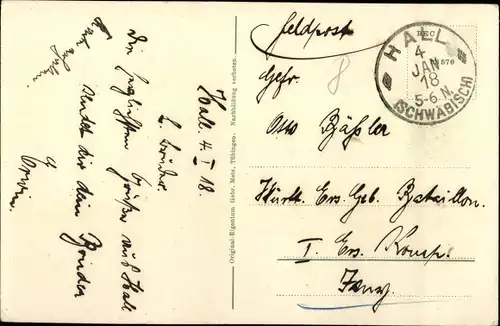 Feldpost
HALL
4
JAN
18
5-6 N.
(SCHWÄBISCH)
Gefr.
Otto Bäßler
Württ. Ers. Geb. Bataillon
I. Ers. Komp.
Isny
Original-Eigentum Gebr. Metz, Tübingen. Nachbildung verboten.
Hall. 4. I 18.
L. Bruder.
Die herzlichsten Grüße aus Hall
sendet dir dein Bruder
Erwin